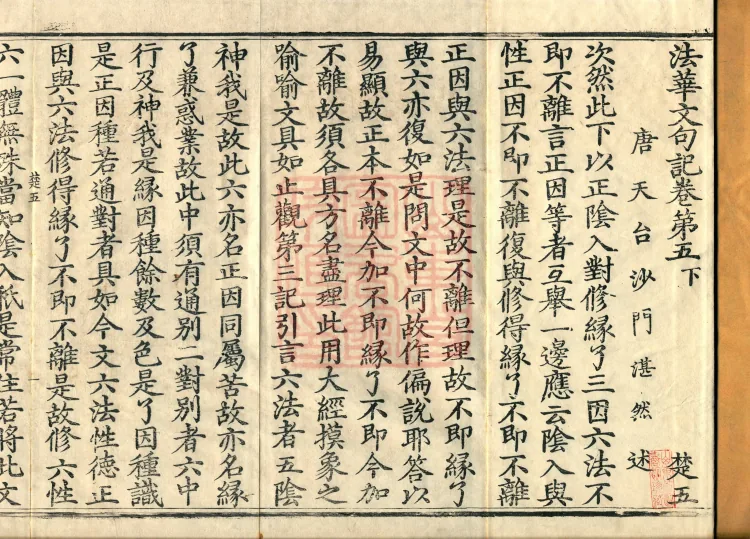 法華文句記卷第五下 楚五
唐天台沙門湛然 述
次然此下以正陰入對修緣了三因六法不
即不離言正因等者互舉一邊應云陰入與
性正因不即不離復與修得緣了不即不離
正因與六法理是故不離但理故不即緣了
與六亦復如是問文中何故作偏說耶答以
易顯故正本不離今加不即緣了不即今加
不離故須各具方名盡理此用大經摸象之
喻喻文具如止觀第三記引言六法者五陰
神我是故此六亦名正因同屬苦故亦名緣
了兼惑業故此中須有通別二對別者六中
行及神我是緣因種餘數及色是了因種識
是正因種若通對者具如今文六法性德正
因與六法修得緣了不即不離是故修六性
楚五
六一體無殊當知陰入秖是常住若將此文